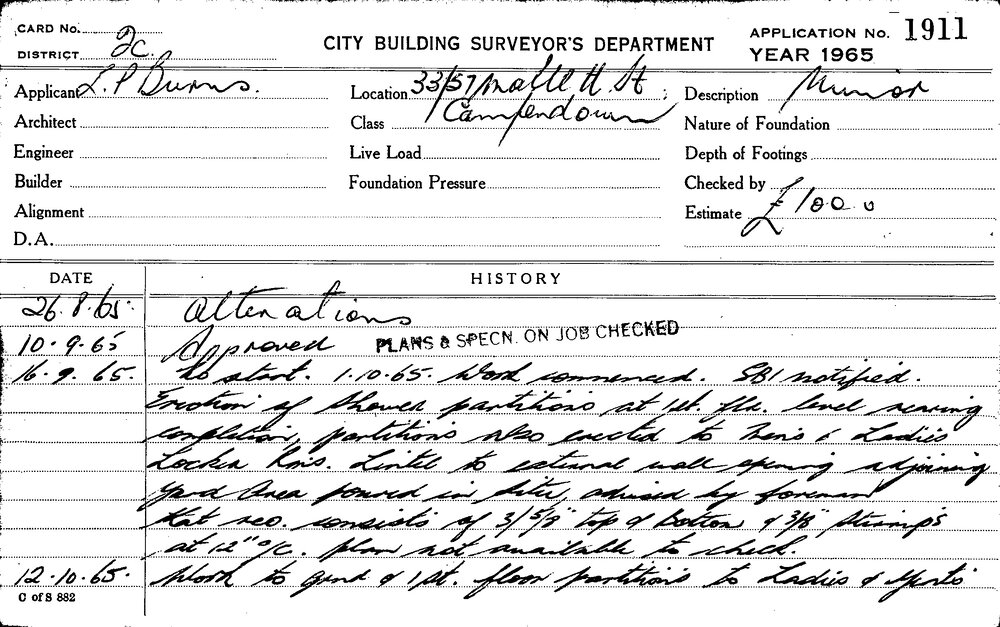 CARD No.
DISTRICT 2c.
CITY BUILDING SURVEYOR'S DEPARTMENT
APPLICATION No. 1911
YEAR 1965
Applicant L. P Burns.
Location 33/57 Mallett St
Camperdown
Description Minor
Architect
Class
Nature of Foundation
Engineer
Live Load
Depth of Footings
Builder
Foundation Pressure
Checked by
Alignment
Estimate £1000
D.A.
DATE
HISTORY
26.8.65. Alterations
10.9.65 Approved PLANS & SPECN. ON JOB CHECKED
16.9.65. No start. 1.10.65. Work commenced. SBI notified.
Erection of shower partitions at 1st. flr. level nearing
completion, partitions also erected to Men's & Ladies
Locker Rms. Lintel to external wall opening adjoining
yard area poured in situ, advised by foreman
that reo. consists of 3/5/8" top & bottom & 3/8" stirrups
at 12" o/c. plan not available to check.
12.10.65. Work to grnd & 1st. floor partitions to Ladies & Gents
C of S 882